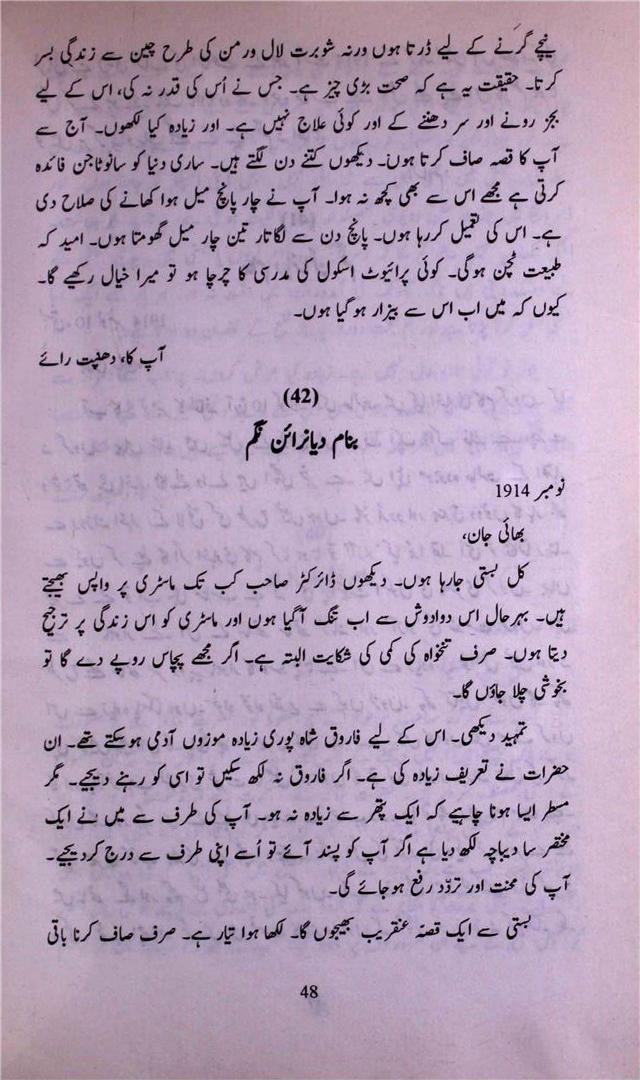 نیچے گرنے کے لیے ڈرتا ہوں ورنہ شوبرت لال ورمن کی طرح چین سے زندگی بسر
کرتا۔ حقیقت یہ ہے کہ صحت بڑی چیز ہے۔ جس نے اُس کی قدر نہ کی، اس کے لیے
بجز رونے اور سر دھننے کے اور کوئی علاج نہیں ہے۔ اور زیادہ کیا لکھوں۔ آج سے
آپ کا قصہ صاف کرتا ہوں۔ دیکھوں کتنے دن لگتے ہیں۔ ساری دنیا کو سانوٹاجن فائدہ
کرتی ہے مجھے اس سے بھی کچھ نہ ہوا۔ آپ نے چار پانچ میل ہوا کھانے کی صلاح دی
ہے۔ اس کی تعمیل کررہا ہوں۔ پانچ دن سے لگاتار تین چار میل گھومتا ہوں۔ امید کہ
طبیعت ٹچن ہوگی۔ کوئی پرائیوٹ اسکول کی مدرسی کا چرچا ہو تو میرا خیال رکھیے گا۔
کیوں کہ میں اب اس سے بیزار ہوگیا ہوں۔
آپ کا، دھنپت رائے
(42)
بنام دیانرائن نگم
نومبر 1914
بھائی جان،
کل بستی جارہا ہوں۔ دیکھوں ڈائرکٹر صاحب کب تک ماسٹری پر واپس بھیجتے
ہیں۔ بہرحال اس دوادوش سے اب تنگ آگیا ہوں اور ماسٹری کو اس زندگی پر ترجیح
دیتا ہوں۔ صرف تنخواہ کی کمی کی شکایت البتہ ہے۔ اگر مجھے پچاس روپے دے گا تو
بخوشی چلا جاؤں گا۔
تمہید دیکھی۔ اس کے لیے فاروق شاہ پوری زیادہ موزوں آدمی ہوسکتے تھے۔ ان
حضرات نے تعریف زیادہ کی ہے۔ اگر فاروق نہ لکھ سکیں تو اسی کو رہنے دیجیے۔ مگر
مسطر ایسا ہونا چاہیے کہ ایک پتھر سے زیادہ نہ ہو۔ آپ کی طرف سے میں نے ایک
مختصر سا دیباچہ لکھ دیا ہے اگر آپ کو پسند آئے تو اُسے اپنی طرف سے درج کردیجیے۔
آپ کی محنت اور تردّد رفع ہوجائے گی۔
بستی سے ایک قصّہ عنقریب بھیجوں گا۔ لکھا ہوا تیار ہے۔ صرف صاف کرنا باقی
48